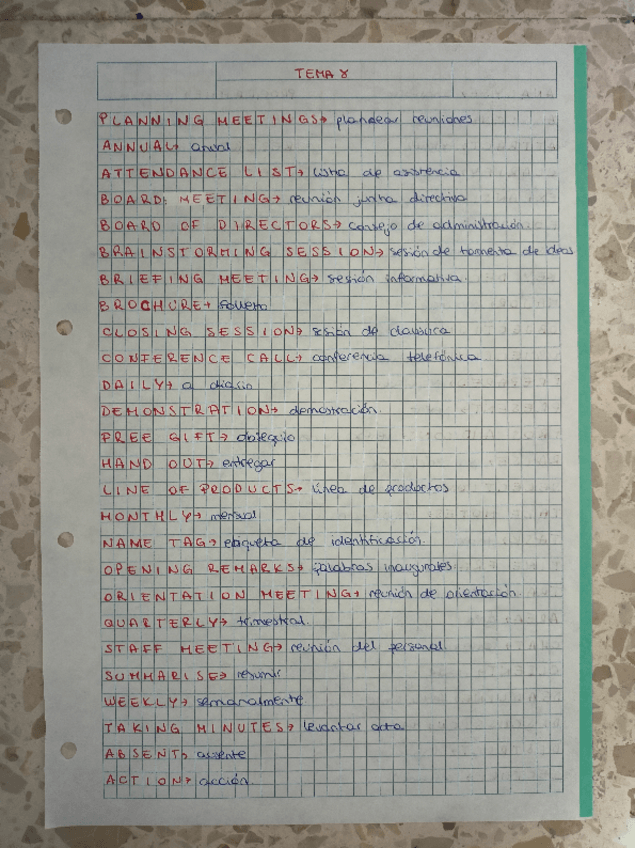 TEMA 8
PLANNING MEETINGS→ planear reuniones
ANNUAL→ anual
ATTENDANCE LIST→ lista de asistencia
BOARD MEETING→ reunión junta directiva
BOARD OF DIRECTORS→ consejo de administración.
BRAINSTORMING SESSION→ sesión de tormenta de ideas
BRIEFING MEETING→ sesión informativa.
BROCHURE→ folleto
CLOSING SESSION→ sesión de clausura
CONFERENCE CALL→ conferencia telefónica
DAILY→ a diario
DEMONSTRATION→ demostración.
FREE GIFT→ obsequio
HAND OUT→ entregar
LINE OF PRODUCTS→ línea de productos
MONTHLY→ mensual
NAME TAG→ etiqueta de identificación.
OPENING REMARKS→ palabras inaugurales.
ORIENTATION MEETING→ reunión de orientación.
QUARTERLY→ trimestral.
STAFF MEETING→ reunión del personal.
SUMMARISE→ resumir
WEEKLY→ semanalmente
TAKING MINUTES→ levantar acta
ABSENT→ ausente
ACTION→ acción.